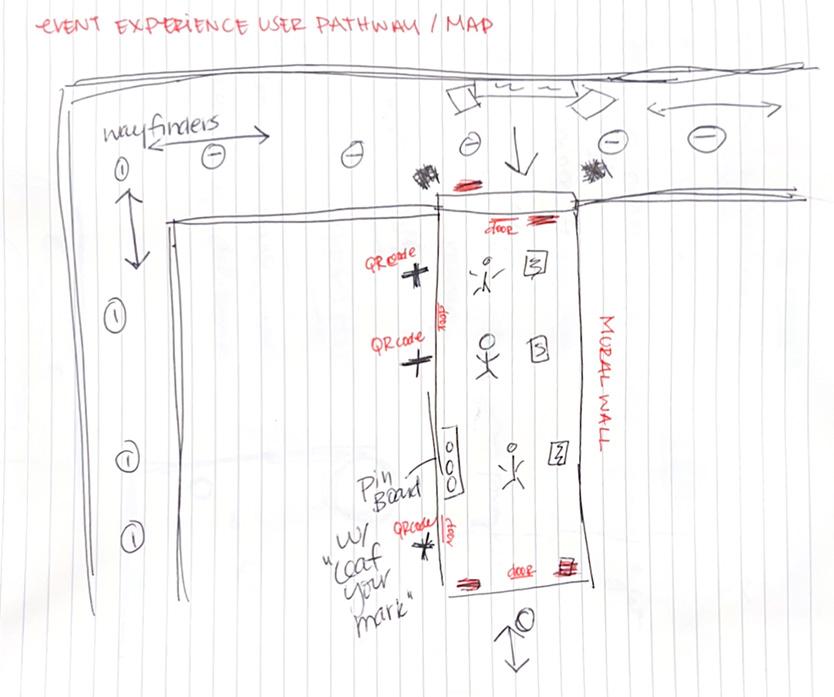 EVENT EXPERIENCE USER PATHWAY / MAP
wayfinders
door
QR code
door
QR code
MURAL WALL
Pin
Board
QR code
door
w/
"Leaf
your
mark"
door